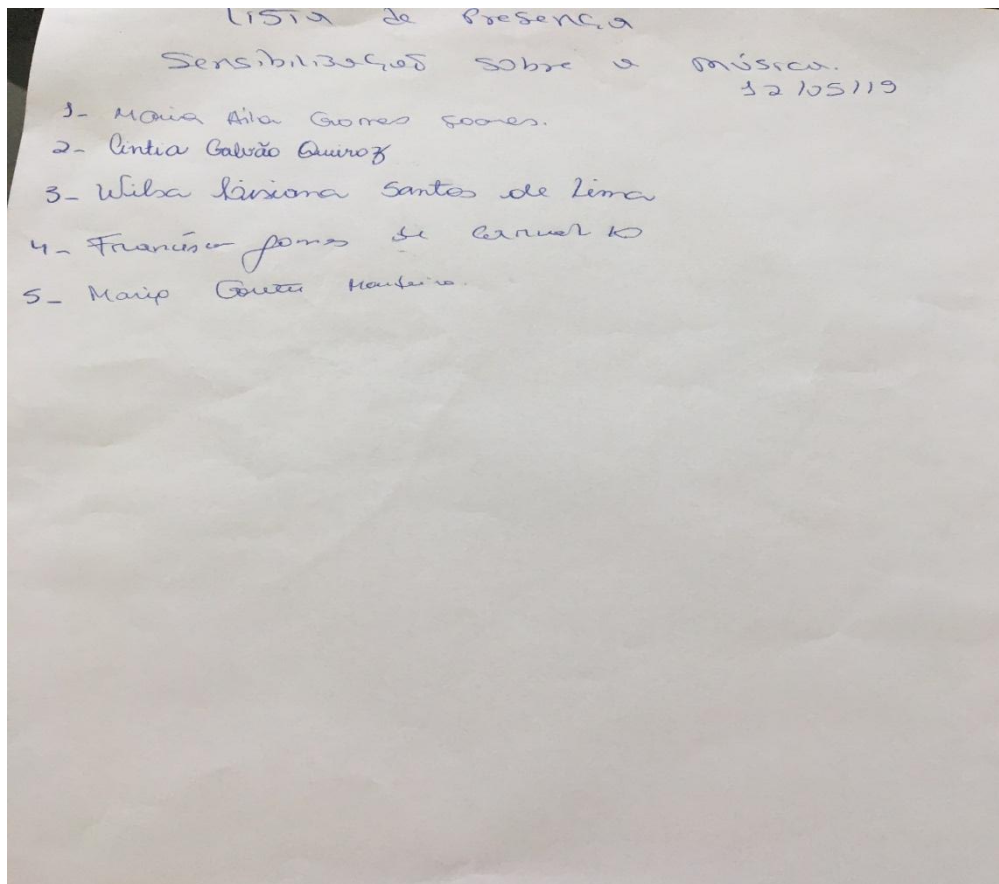 Lista de Presença
Sensibilização sobre a música.
12/05/19
1- Maria Aila Gomes Soares.
2- Cintia Galvão Quiroz
3- Wilsa Santos de Lima
4- Francisca Gomes de Carvalho
5- Maria Monteiro.